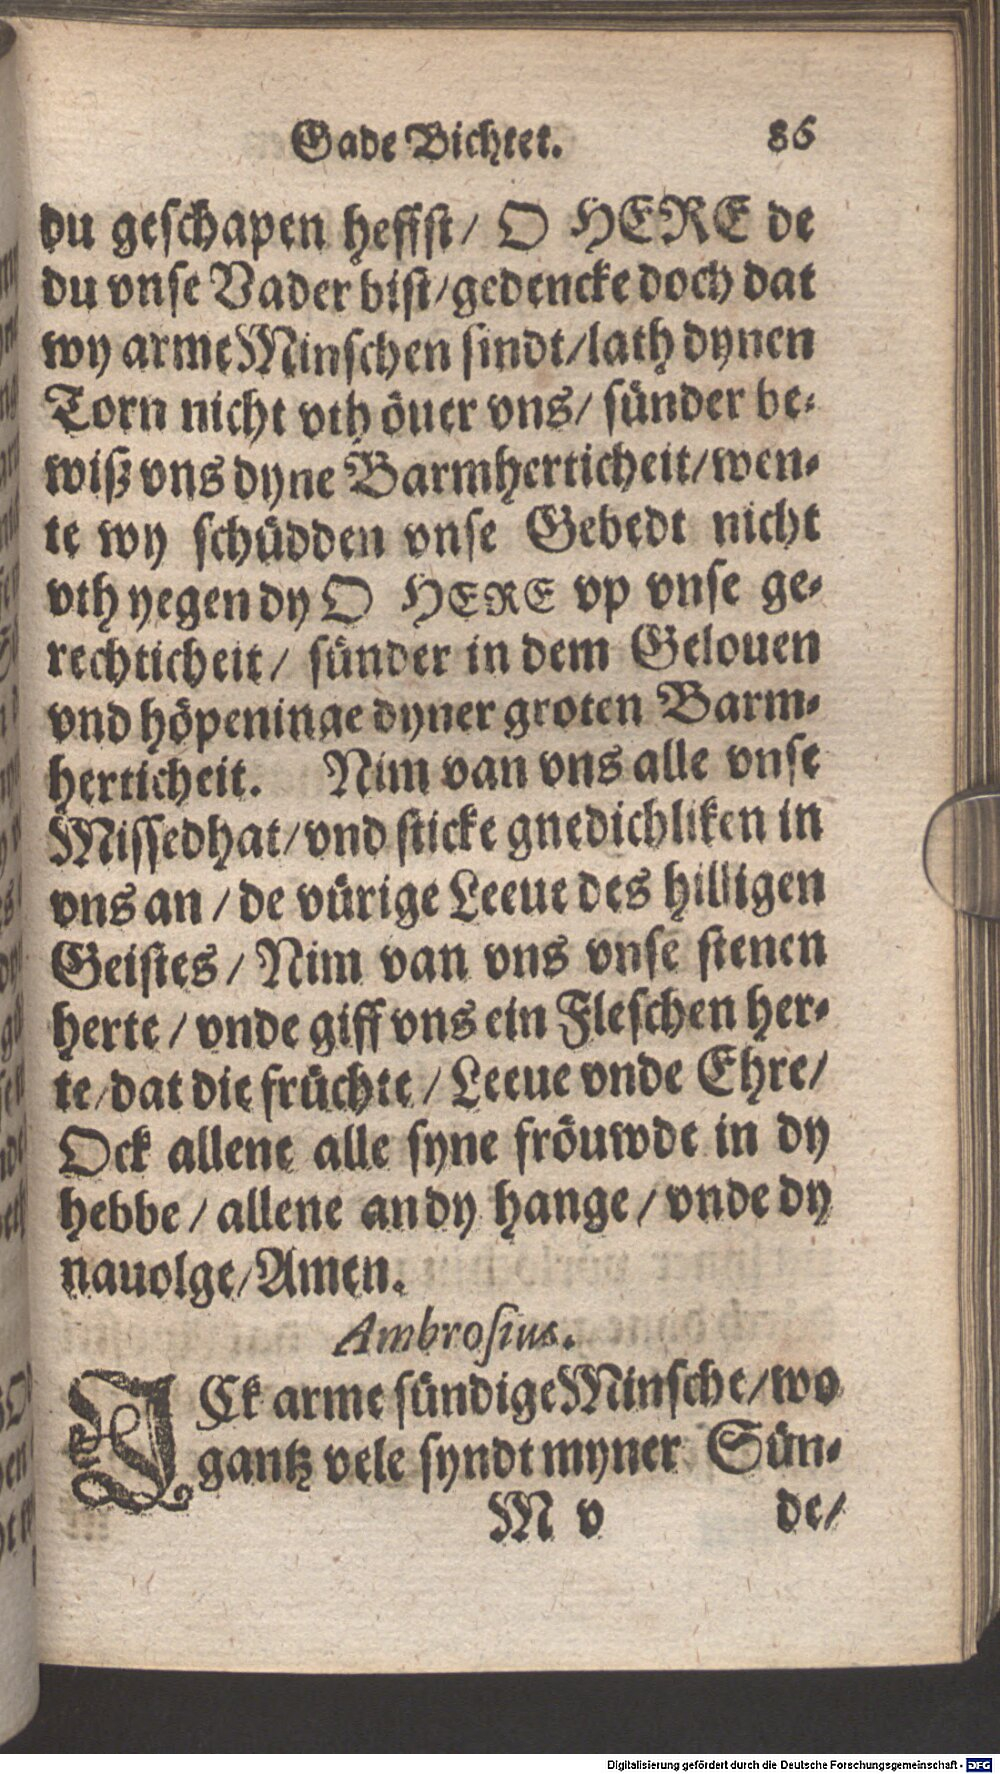 Gade Bichtet. 86
du geschapen heffst/ O HERE de
du vnse Vader bist/gedencke doch dat
wy arme Minschen sindt/lath dynen
Torn nicht vth öuer vns/ sünder be-
wiß vns dyne Barmherticheit/wen-
te wy schüdden vnse Gebedt nicht
vth yegen dy O HERE vp vnse ge-
rechticheit/ sünder in dem Gelouen
vnd höpeninge dyner groten Barm-
herticheit. Nim van vns alle vnse
Missedhat/vnd sticke gnedichliken in
vns an/de vürige Leeue des hilligen
Geistes/Nim van vns vnse stenen
herte/vnde giff vns ein Fleschen her-
te/dat die früchte/Leeue vnde Ehre/
Ock allene alle syne fröuwde in dy
hebbe/allene an dy hange/vnde dy
nauolge/Amen.
Ambrosius.
JCk arme sündige Minsche/wo
gantz vele syndt myner Sün-
M v de/
Digitalisierung gefördert durch die Deutsche Forschungsgemeinschaft - DFG